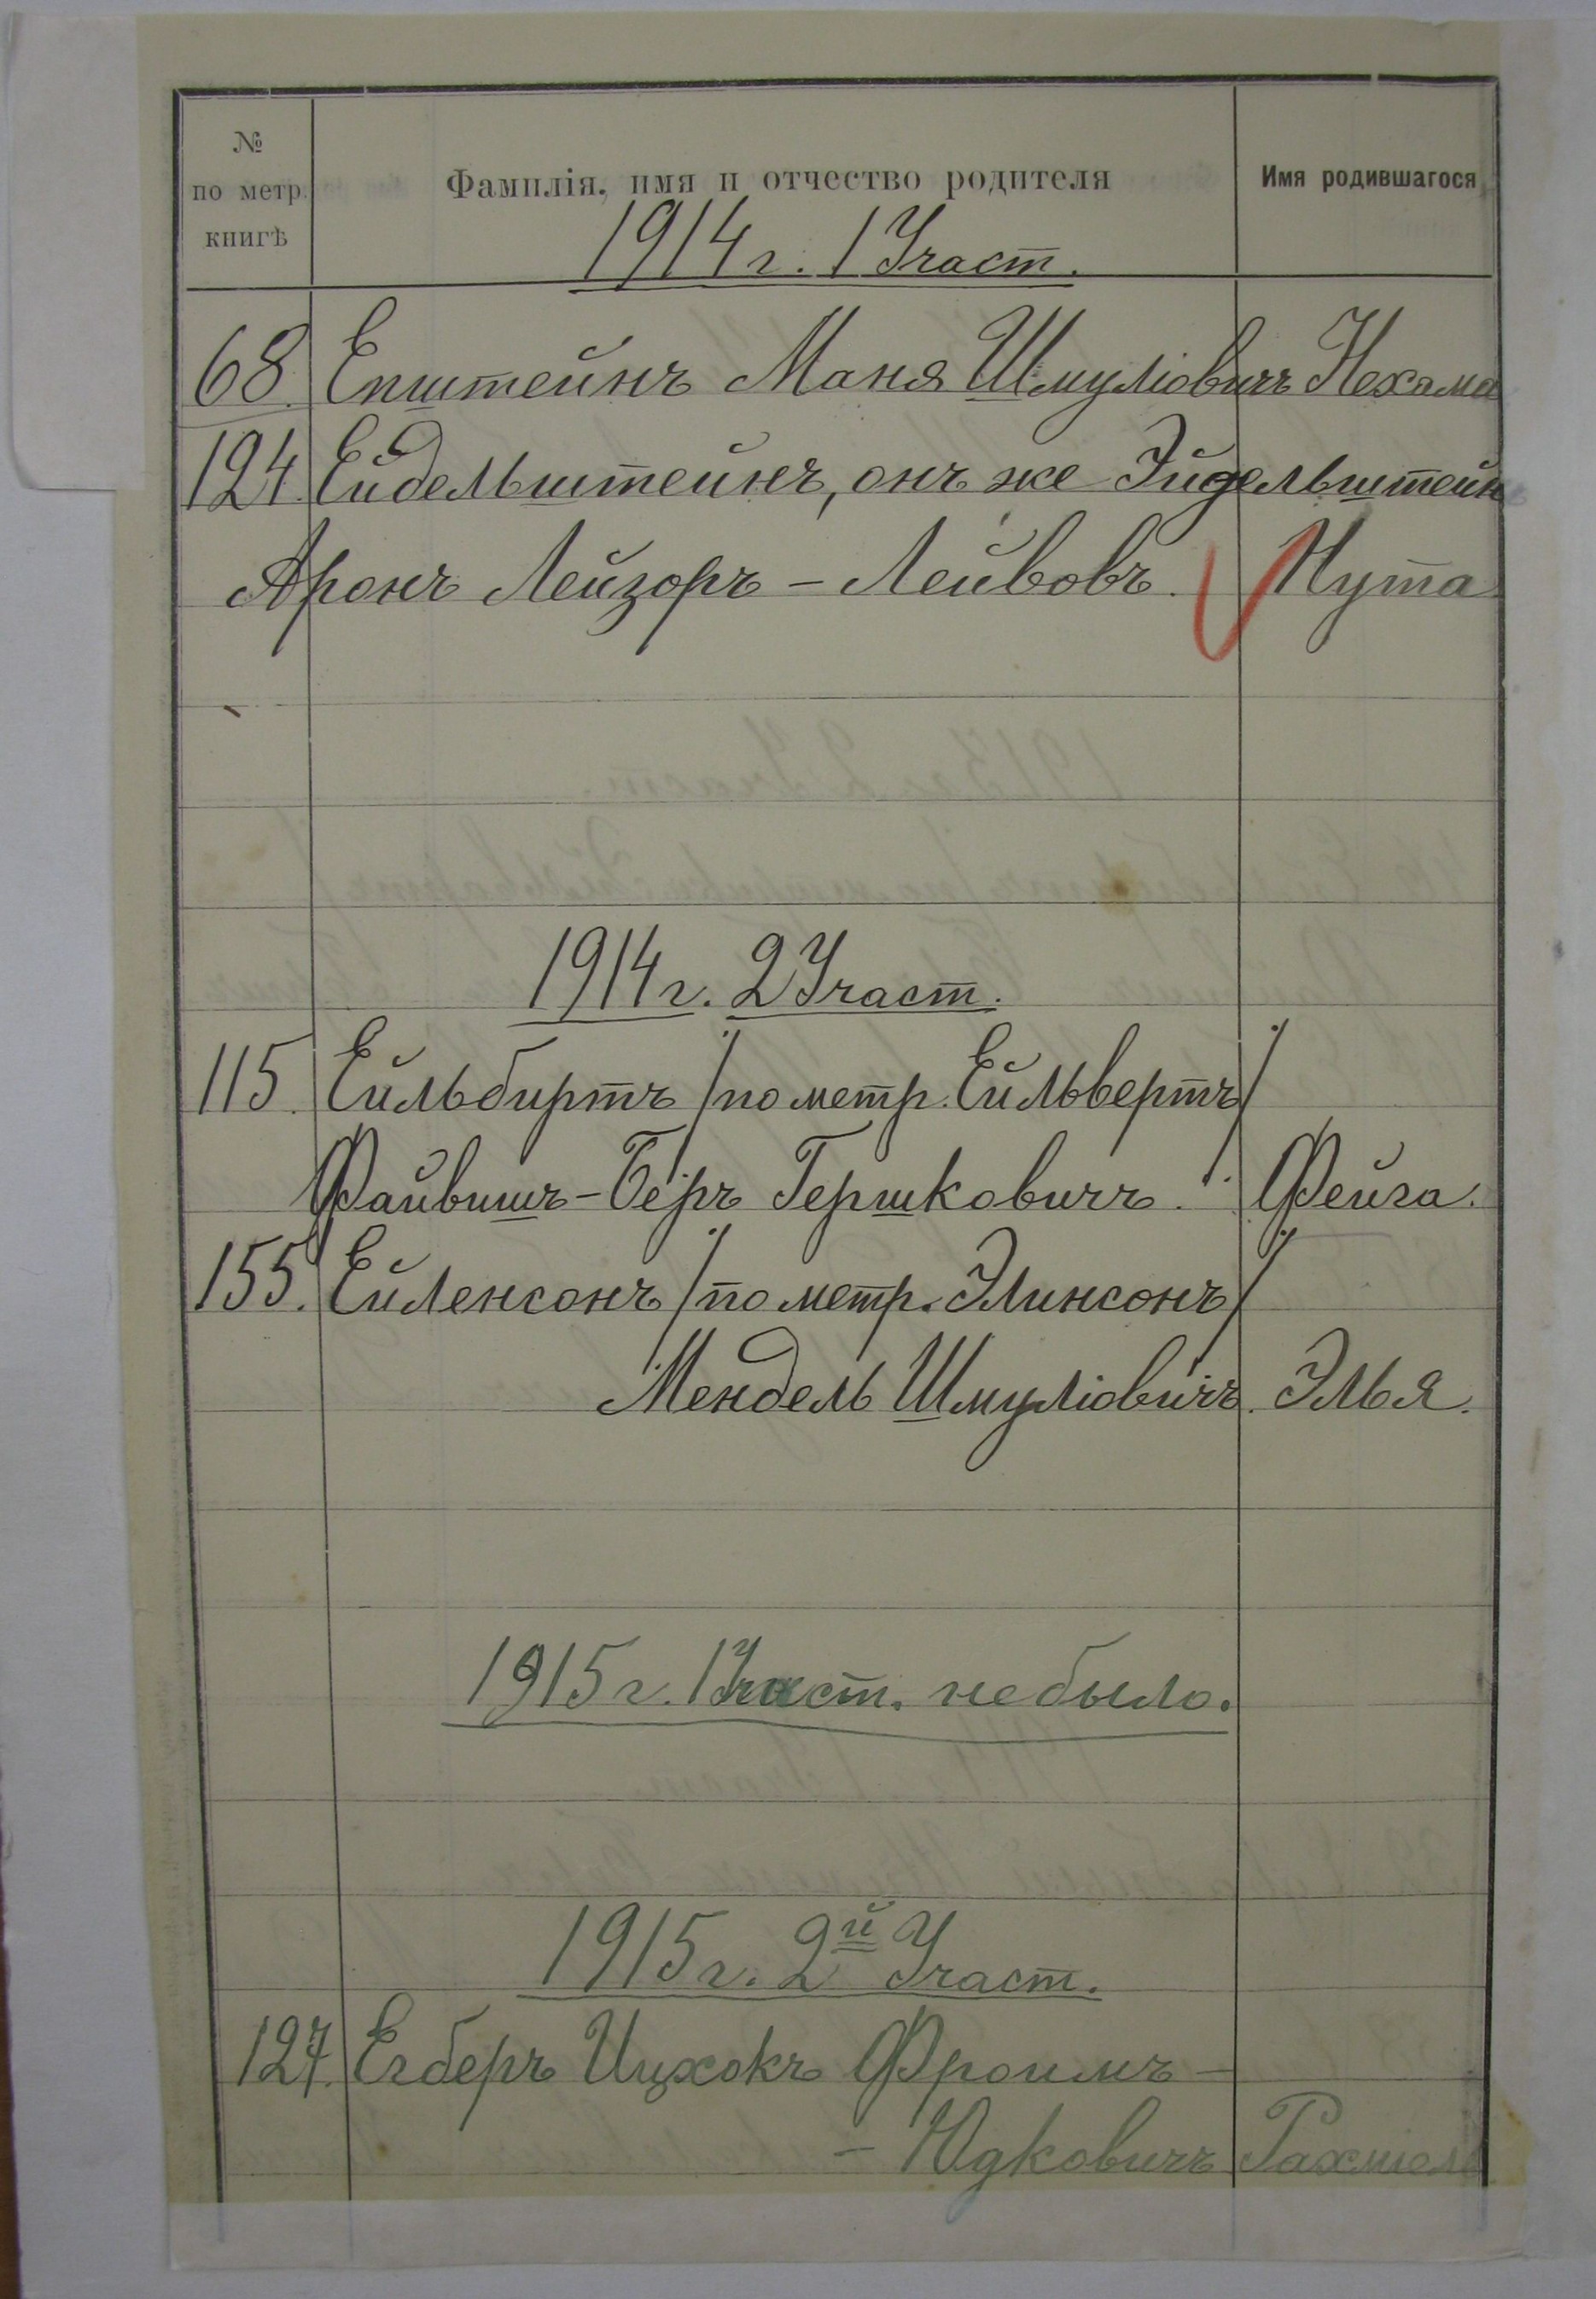 № по метр. книгѣ
Фамилія, имя и отчество родителя
Имя родившагося
1914 г. 1 Участ.
68. Епштейнъ Маня Шмуліовичъ Нехама
124. Ейдельштейнъ, онъ же Эйдельштейн
Аронъ Лейзоръ - Лейбовъ. Нута
1914 г. 2 Участ.
115. Ейльбиртъ /по метр. Ейльвертъ/
Файвишъ-Беръ Гершковичъ. Фейга.
155. Ейленсонъ /по метр. Элинсонъ/
Мендель Шмуліовичъ. Элья.
1915 г. 1 Участ. не было.
1915 г. 2й Участ.
127. Егберъ Ицхокъ Фроимъ -
- Юдковичъ Рахміель